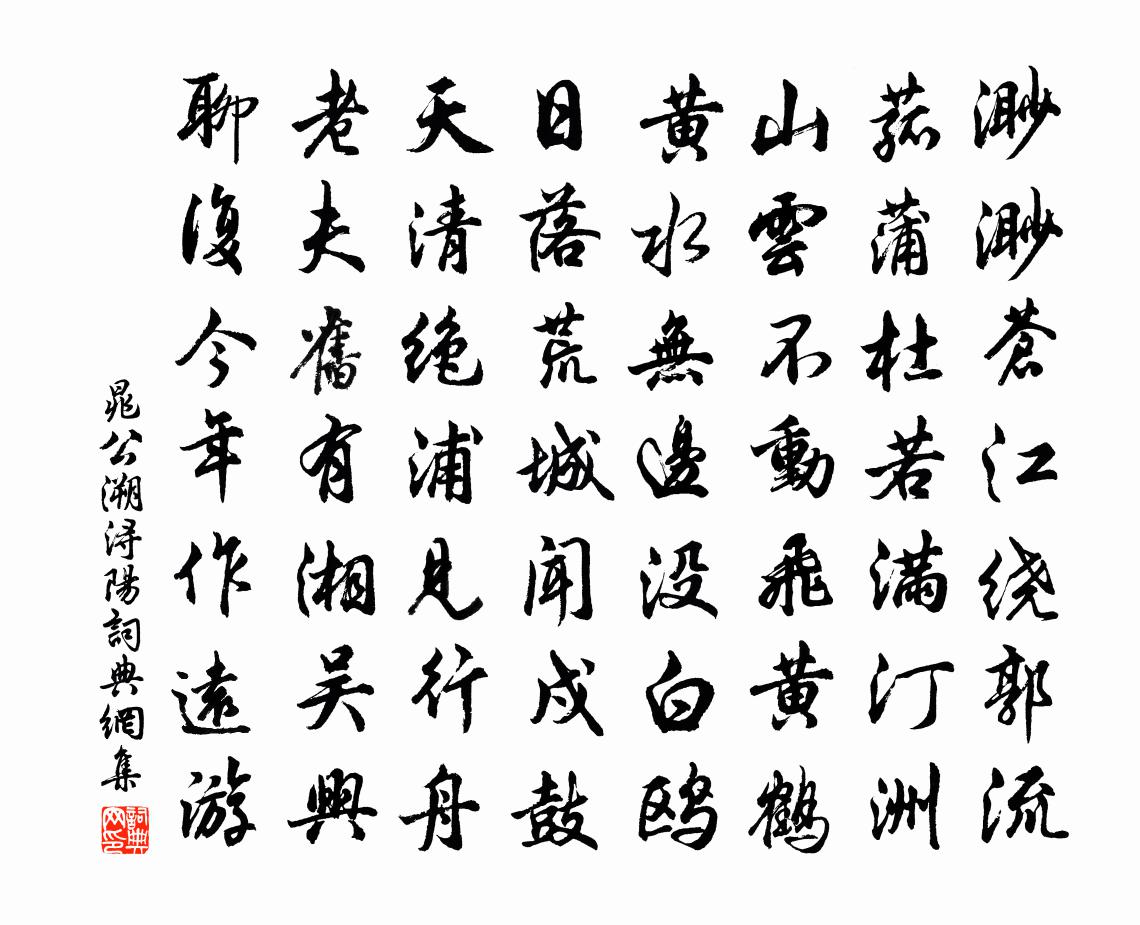 渺渺蒼江绕郭流
菰蒲杜若满汀洲
山雲不動飛黄鹤
黄水無邊没白鸥
日落荒城闻戍鼓
天清绝浦見行舟
老夫舊有湘吴興
聊復今年作遠游
晁公溯浔陽詞典網集
詞典网印